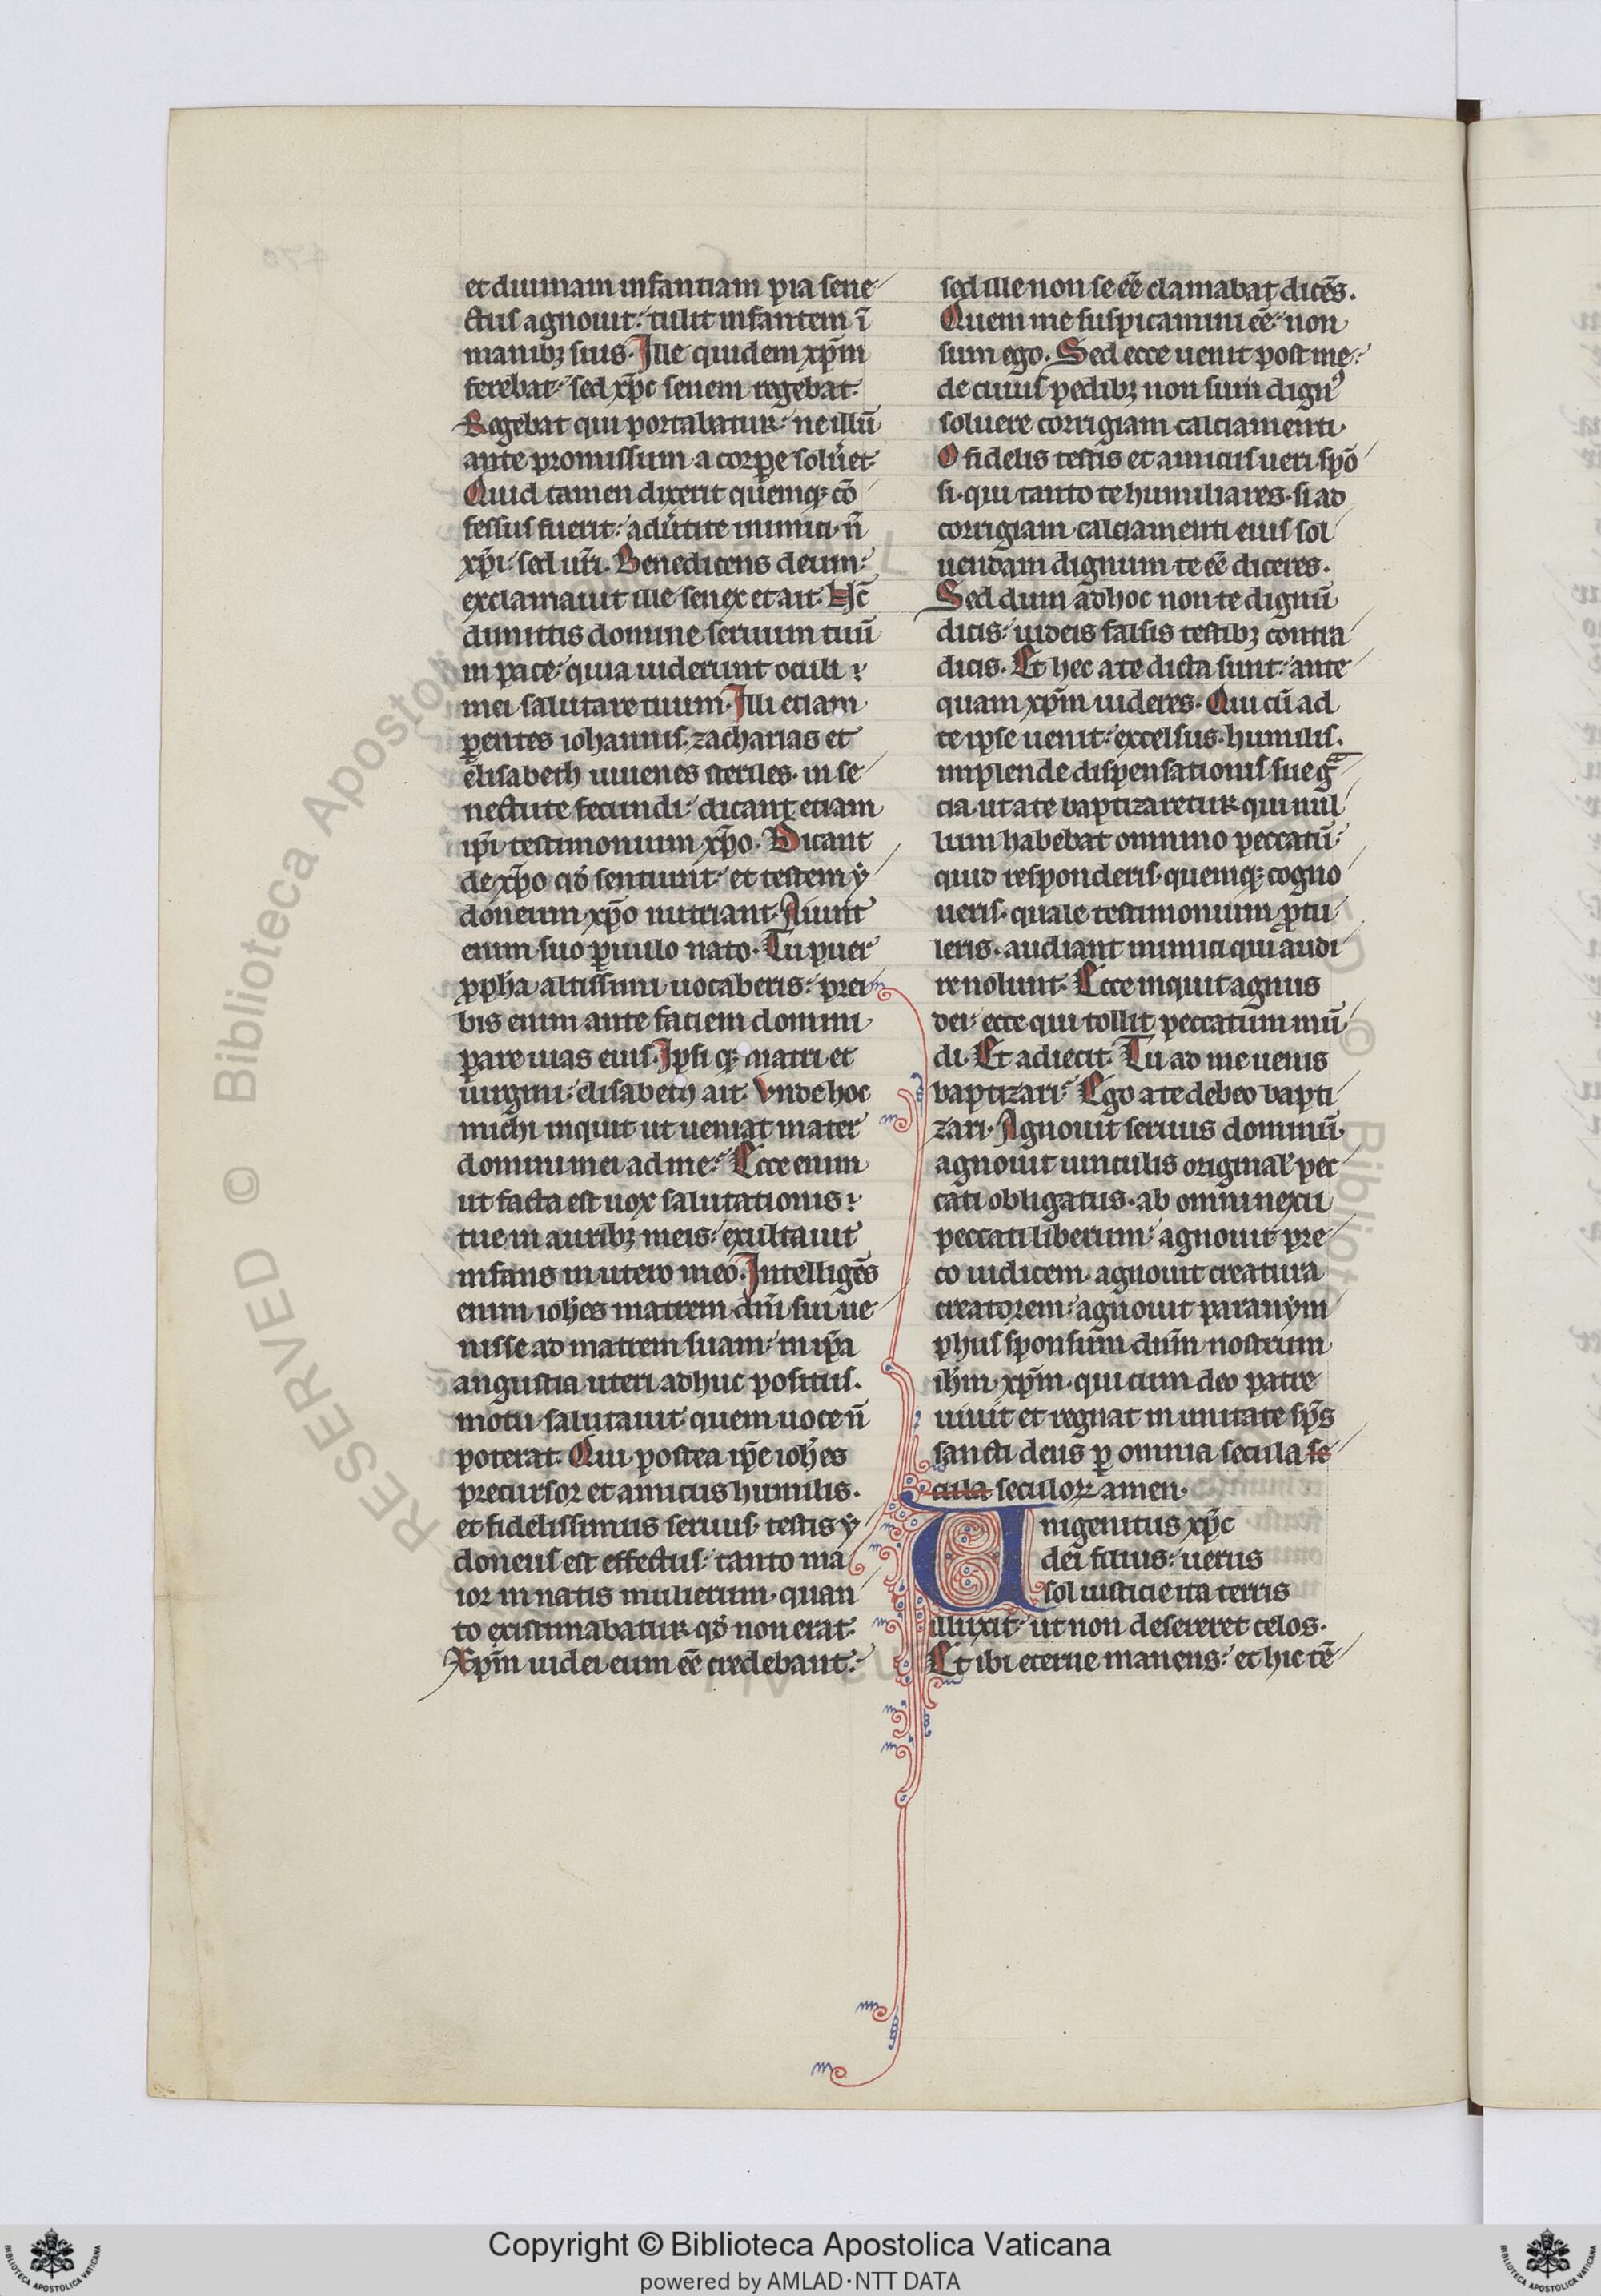 et diuinam infantiam pia sene
ctus agnouit. tulit infantem ī
manibꝫ suis. Ille quidem xp̄m
ferebat. sed xp̄c senem regebat.
Regebat qui portabatur. ne illū
ante promissum a corꝑe solu̾et.
Quid tamen dixerit quemqꝫ cō
fessus fuerit. adu̾tite inimici. n̄
xp̄i. sed ur̄i. Benedicens deum.
exclamauit ille senex et ait. Nc̄
dimittis domine seruum tuū
in pace. quia uiderunt oculi
mei salutare tuum. Illi etiam
ꝑentes iohannis. zacharias et
elisabeth iuuenes steriles. in se
nectute fecundi. dicant etiam
ip̄i testimonium xp̄o. Dicant
de xp̄o qd̾ sentiunt. et testem ẏ
doneum xp̄o nutriant. Aiunt
enim suo ꝑuulo nato. Tu puer
ꝓph̄a altissimi uocaberis. prei
bis enim ante faciem domini
ꝑare uias eius. Ipsi qꝫ matri et
uirgini. elisabeth ait. Vnde hoc
michi inquit ut ueniat mater
domini mei ad me. Ecce enim
ut facta est uox salutationis
tue in auribꝫ meis. exultauit
infans in utero meo. Intelligēs
enim ioh̄es matrem dn̄i sui ue
nisse ad matrem suam. in ip̄a
angustia uteri adhuc positus.
motu salutauit quem uoce n̄
poterat. Qui postea ip̄e ioh̄es
precursor et amicus humilis.
et fidelissimus seruus. testis ẏ
doneus est effectus. tanto ma
ior in natis mulierum. quan
to existimabatur qd̾ non erat.
Xp̄m iudei eum eē̄ credebant.
sed ille non se eē̄ clamabat dicēs.
Quem me suspicamini eē̄. non
sum ego. Sed ecce uenit post me.
de cuius pedibꝫ non sum dignꝰ
soluere corrigiam calciamenti.
O fidelis testis et amicus ueri spō
si. qui tanto te humiliares. si ad
corrigiam calciamenti eius sol
uendam dignum te eē̄ diceres.
Sed dum ad hoc non te dignū
dicis. iudeis falsis testibꝫ contra
dicis. Et hec a te dicta sunt. ante
quam xp̄m uideres. Qui cū ad
te ipse uenit. excelsus. humilis.
implende dispensationis sue gͣ
cia. ut a te baptizaretur qui nul
lum habebat omnino peccatū.
quid responderis. quemqꝫ cogno
ueris. quale testimonium ꝓtu
leris. audiant inimici qui audi
re nolunt. Ecce inquit agnus
dei. ecce qui tollit peccatum mū
di. Et adiecit. Tu ad me uenis
baptizari. Ego a te debeo bapti
zari. Agnouit seruus dominū.
agnouit uinculis original̾ pec
cati obligatus. ab omni nexu
peccati liberum. agnouit pre
co iudicem. agnouit creatura
creatorem. agnouit paranym
phus sponsum dn̄m nostrum
ih̄m xp̄m. qui cum deo patre
uiuit et regnat in unitate sp̄s
sancti deus ꝑ omnia secula se
cula seculoꝝ amen.
Unigenitus xp̄c
dei filius. uerus
sol iusticie ita terris
illuxit. ut non desereret celos.
Et ibi eterne manens. et hic tē
RESERVED © Biblioteca Apostolica
Copyright © Biblioteca Apostolica Vaticana
powered by AMLAD·NTT DATA